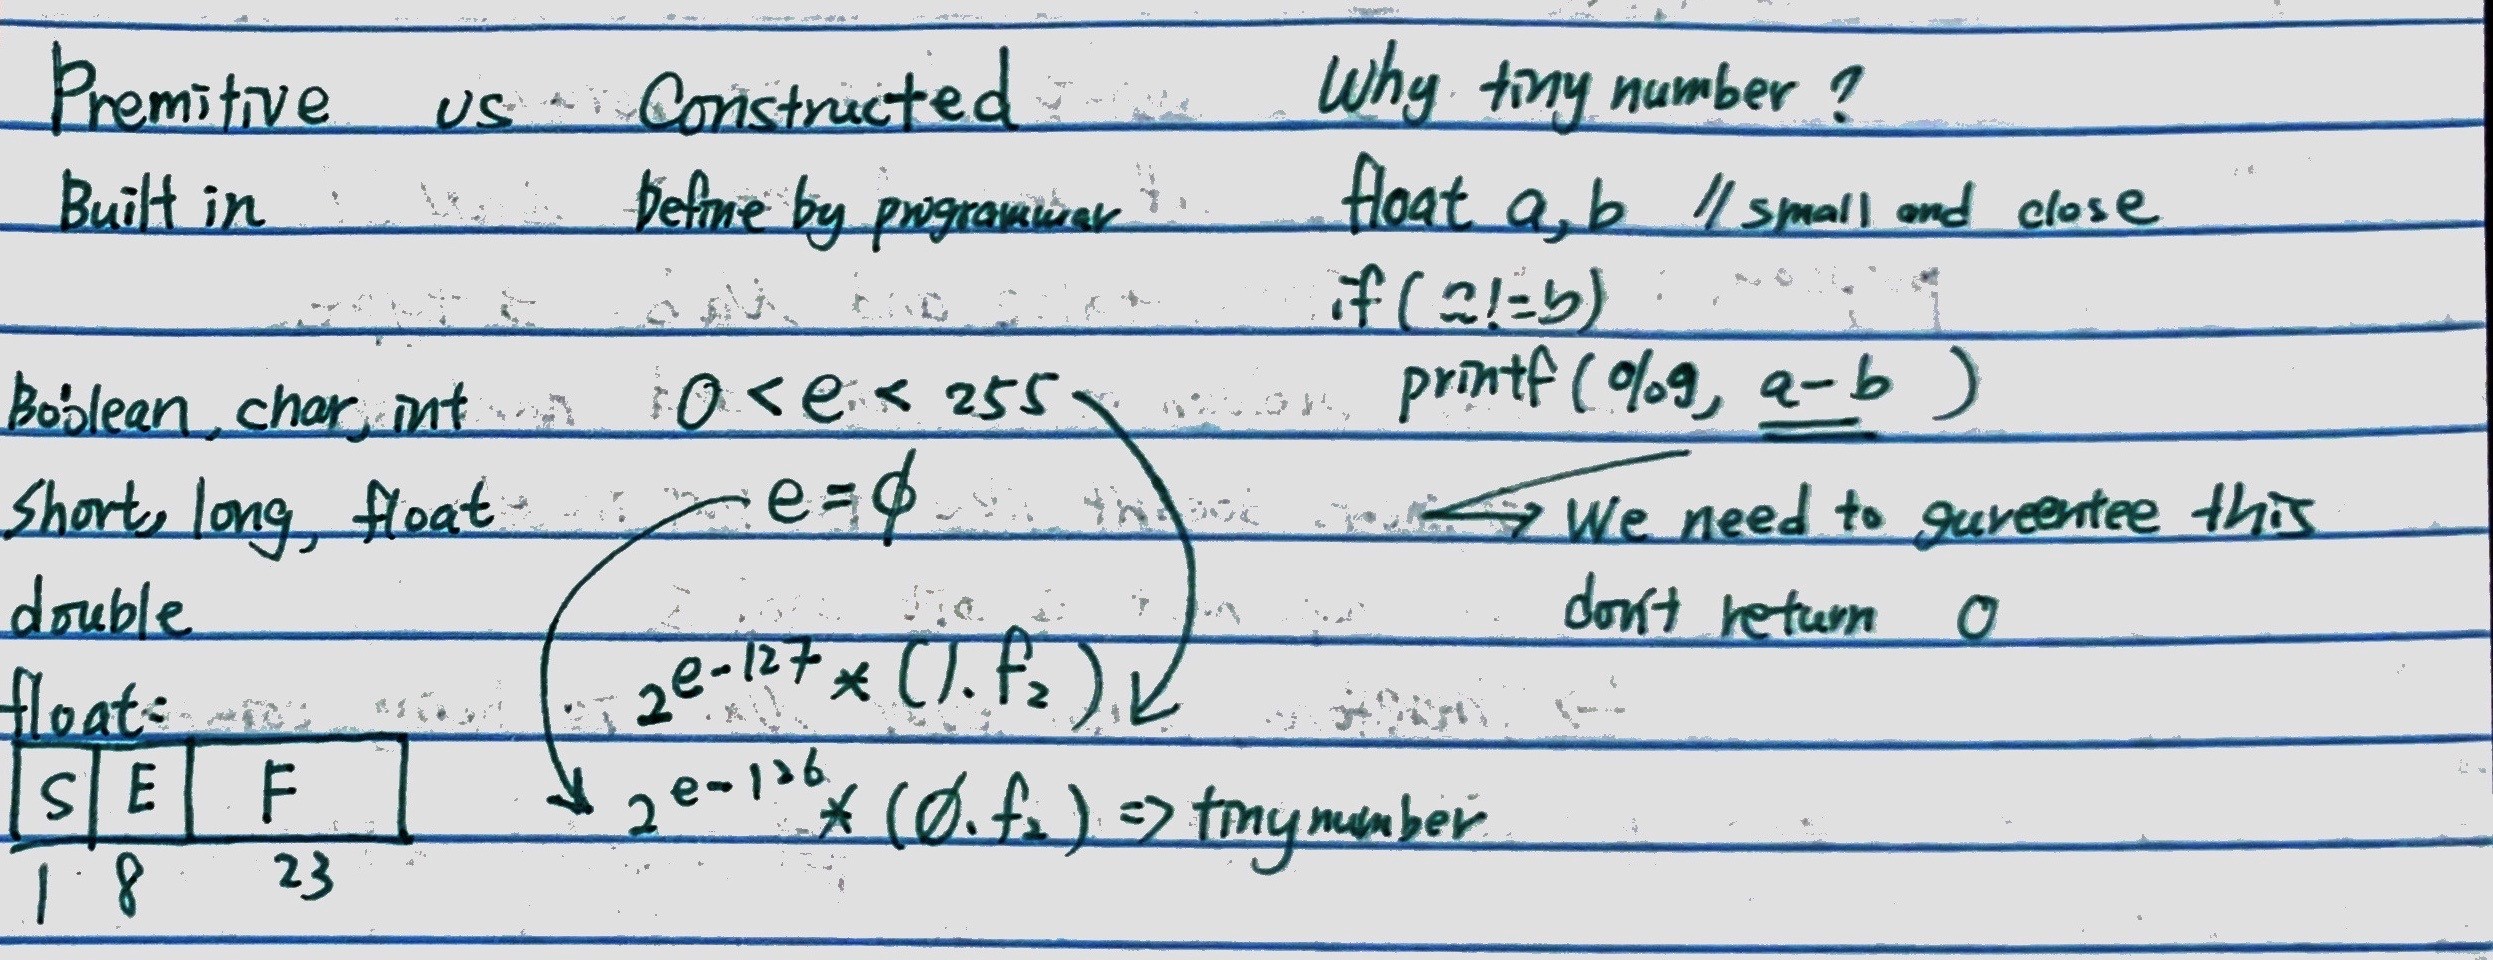 Premitive vs Constructed
Built in Define by programmer
Boolean, char, int
short, long, float
double
float:
S E F
1 8 23
0 < e < 255
e = ϕ
2^{e-127} * (1.f₂)
2^{e-126} * (ϕ.f₂) => tiny number
Why tiny number?
float a, b // small and close
if (a != b)
printf(%g, a-b )
We need to gureentee this
don't return 0